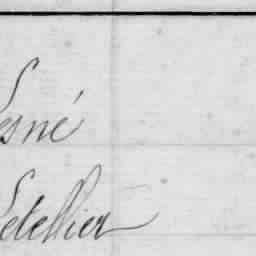 Lesné
Letellier